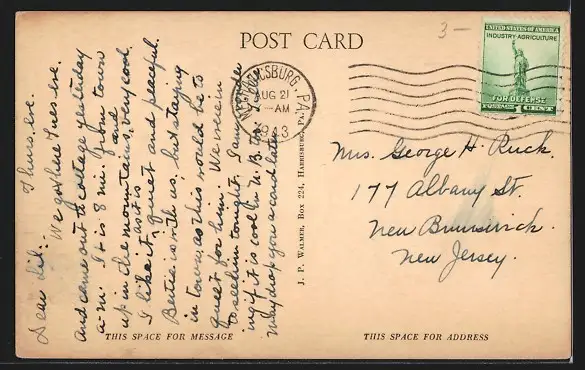 POST CARD
3—
UNITED STATES OF AMERICA
INDUSTRY-AGRICULTURE
FOR DEFENSE
POSTAGE 1 CENT
BURG, PA.
AUG 21
-AM
Thurs. eve.
Dear Lil:-
We got here Tues. eve.
and came out to cottage yesterday
a-m. It is 8 mi. from town
up in the mountains, and very cool.
I like it as it is quiet and peaceful.
Bertie is with us, but staying
in town, as this would be to
quiet for him. We were in
to see him tonight. I am wonder
ing if it is cool in N. B. too.
May drop you a card later
J. P. WALMER, BOX 224, HARRISBURG, PA.
Mrs. George H. Ruck.
177 Albany St.
New Brunswick.
New Jersey.
THIS SPACE FOR MESSAGE
THIS SPACE FOR ADDRESS